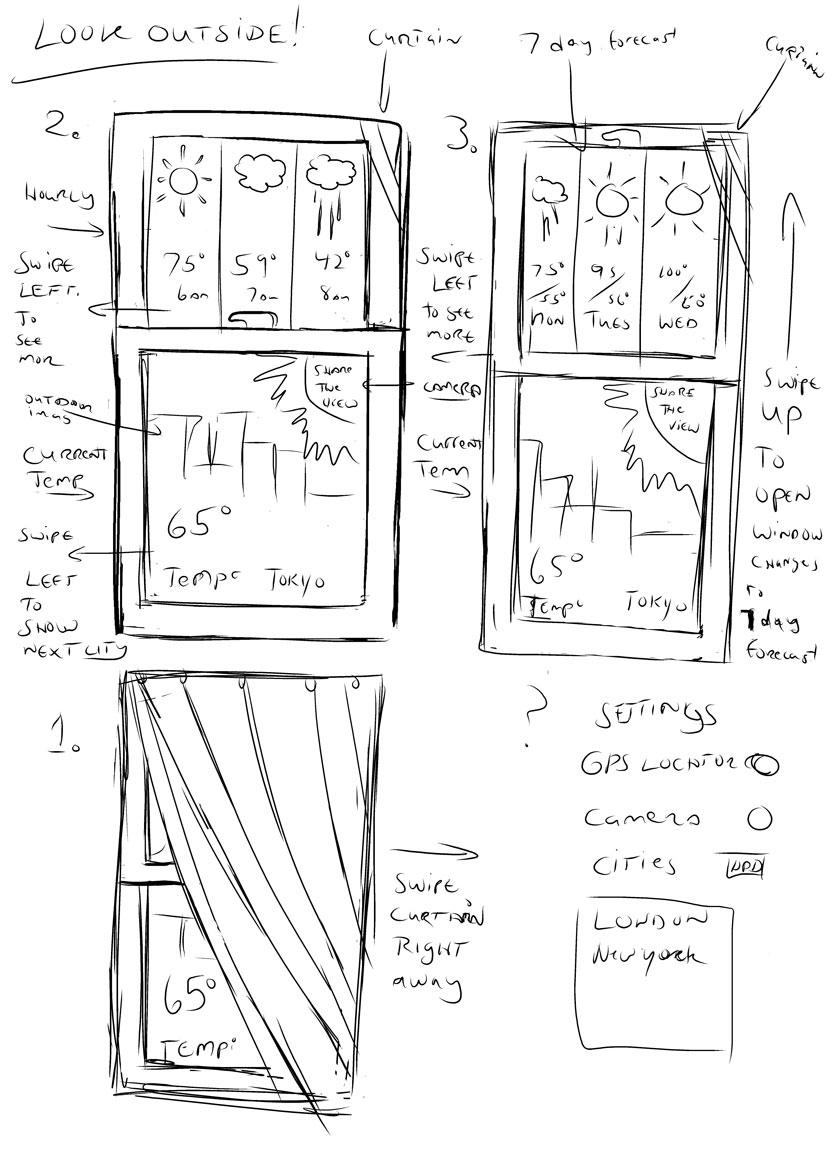 LOOK OUTSIDE!
CURTAIN
7 day forecast
CURTAIN
2.
HOURLY
SWIPE
LEFT.
TO
SEE
MOR
OUTDOOR
CURRENT
TEMP
SWIPE
LEFT
TO
SHOW
NEXT CITY
75° 59° 42°
6am 7am 8am
SHARE
THE
VIEW
65°
TEMPE TOKYO
3.
SWIPE
LEFT
to SEE
MORE
CAMERA
CURRENT
TEMP
75°/55° 95/56° 100°/60°
MON TUES WED
SHARE
THE
VIEW
65°
TEMPE TOKYO
SWIPE
UP
TO
OPEN
WINDOW
CHANGES
TO
7 day
Forecast
1.
65°
TEMPE
SWIPE
CURTAIN
RIGHT
away
?
SETTINGS
GPS LOCATOR
Camera
Cities ADD
LONDON
New york